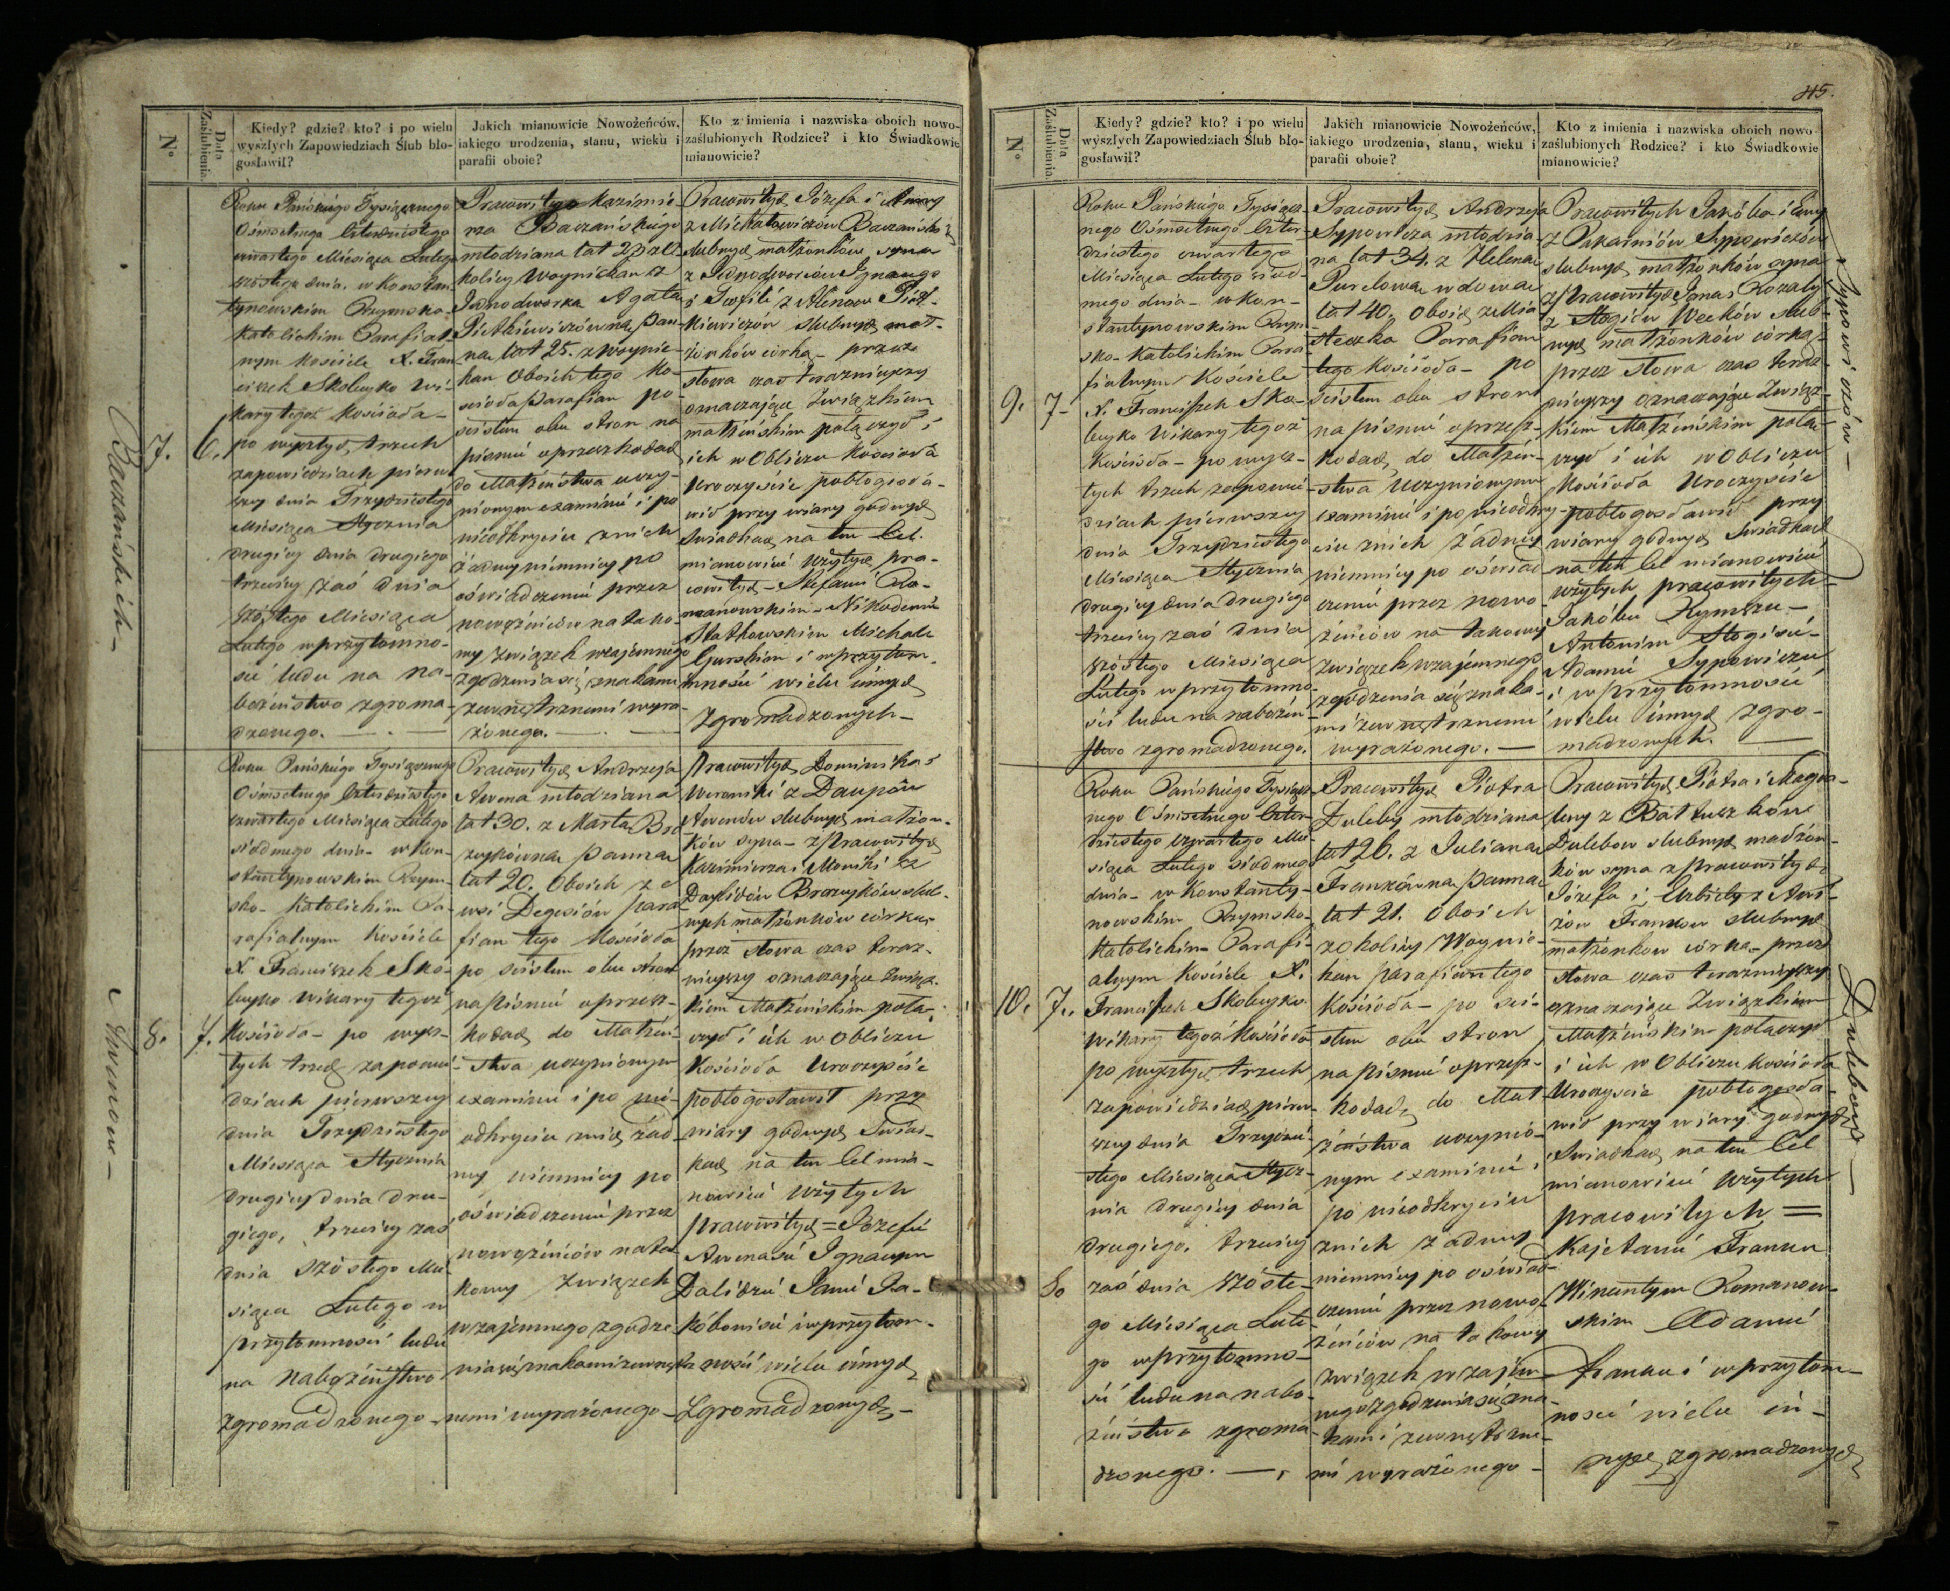 N°
Data Zaślubienia
Kiedy? gdzie? kto? i po wielu
wyszłych Zapowiedziach Ślub bło-
gosławił?
Jakich mianowicie Nowożeńców,
iakiego urodzenia, stanu, wieku i
parafii oboie?
Kto z imienia i nazwiska oboich nowo-
zaślubionych Rodzice? i kto Świadkowie
mianowicie?
Baczańskich
7.
6.
Roku Pańskiego Tysiącznego
Ośmsetnego Czterdziestego
czwartego Miesiąca Lutego
szóstego dnia w Konstan
tynowskim Rzymsko
Katolickim Parafial
nym Kościele X. Fran
ciszek Skobeyko Wi
kary tegoż Kościoła
po wyszłych trzech
zapowiedziach pierw
szey dnia Trzydziestego
Miesiąca Stycznia
drugiey dnia drugiego
trzeciey zaś dnia
szóstego Miesiąca
Lutego w przytomno-
ści ludu na na-
bożeństwo zgroma-
dzonego.
Pracowitego Kazimie
rza Baczańskiego
młodziana lat 23 z
okolicy Woynichan z
Jednodworką Agatą
Pietkiewiczówną pan
ną lat 25. z Woynic-
han Oboich tego Ko-
ścioła Parafian po-
ścisłem obu stron na
piśmie o przeszkodach
do Małżeństwa uczy-
nionym examinie i po
nieodkryciu z nich
żadney niemniey po
oświadczeniu przez
nowożeńców na tako-
wy związek wzajemnego
zgodzenia się znakami
zewnętrznemi wyra-
żonego.
Pracowitych Józefa i Anny
z Michałowiczów Baczańskich
ślubnych małżonków syna
z Jednodworców Ignacego
i Teofili z Piót-
kiewiczów ślubnych mał-
żonków córką przez
słowa czas teraznieyszy
oznaczające Związkiem
małżeńskim połączył i
ich w Obliczu Kościoła
Uroczyście pobłogosła-
wił przy wiary godnych
Świadkach na ten Cel
mianowicie wziętych pra-
cowitych Stefanie Ro-
manowskim Nikodemie
Statkowskim Michale
Gurskim i w przytom-
mności wielu innych
Zgromadzonych
Awenow
8.
7.
Roku Pańskiego Tysiącznego
Ośmsetnego Czterdziestego
czwartego Miesiąca Lutego
siódmego dnia w Kon
stantynowskim Rzym
sko Katolickim Pa-
rafialnym Kościele
X. Franciszek Sko-
beyko Wikary tegoż
Kościoła po wysz-
łych trzech zapowie
dziach pierwszey
dnia Trzydziestego
Miesiąca Stycznia
drugiey dnia dru-
giego, trzeciey zaś
dnia szóstego Mie
siąca Lutego w
przytomności ludu
na nabożeństwo
zgromadzonego
Pracowitych Andrzeja
Awena młodziana
lat 30. z Martą Bro
zuykówną Panną
lat 20. Oboich ze
wsi Degesiów Para
fian tego Kościoła
po ścisłem obu stron
na piśmie o przesz-
kodach do Małżeń
stwa uczynionym
examinie i po nie
odkryciu z nich żad
ney niemniey po
oświadczeniu przez
nowożeńców na ta
kowy Związek
wzajemnego zgodze
nia się znakami zewnętrz
nemi wyrażonego
Pracowitych Dominika i
Weroniki z Daupów
Awenów ślubnych małżon-
ków syna z Pracowitych
Kazimierza i Moniki z
Dawidów Brozuyków ślub-
nych małżonków córką
przez słowa czas teraz-
nieyszy oznaczające Związ-
kiem Małżeńskim połą-
czył i ich w Obliczu
Kościoła Uroczyście
pobłogosławił przy
wiary godnych Świad-
kach na ten Cel mia-
nowicie wziętych
pracowitych = Józefie
Awenasie Ignacym
Dalidzie Janie Ja-
kóbowisie i w przytom-
ności wielu innych
Zgromadzonych
45.
N°
Data Zaślubienia
Kiedy? gdzie? kto? i po wielu
wyszłych Zapowiedziach Ślub bło-
gosławił?
Jakich mianowicie Nowożeńców,
iakiego urodzenia, stanu, wieku i
parafii oboie?
Kto z imienia i nazwiska oboich nowo-
zaślubionych Rodzice? i kto Świadkowie
mianowicie?
9.
7
Roku Pańskiego Tysiącz-
nego Ośmsetnego Czter-
dziestego czwartego
Miesiąca Lutego siód-
mego dnia w Kon-
stantynowskim Rzym
sko-Katolickim Para
fialnym Kościele
X. Franciszek Sko-
beyko Wikary tegoż
Kościoła po wysz-
łych trzech zapowie-
dziach pierwszey
dnia Trzydziestego
Miesiąca Stycznia
drugiey dnia drugiego
trzeciey zaś dnia
szóstego Miesiąca
Lutego w przytomno-
ści ludu na nabożeń-
stwo zgromadzonego.
Pracowitych Andrzeja
Sypowicza młodzia-
na lat 34. z Heleną
Purelową wdową
lat 40. Oboich z Mia
steczka Parafian
tego Kościoła po
ścisłem obu stron
na piśmie o przesz-
kodach do Małżeń-
stwa Uczynionym
examinie i po nieodkry-
ciu z nich żadney
niemniey po oświad
czeniu przez nowo-
żeńców na takowy
Związek wzajemnego
zgodzenia się znaka-
mi zewnętrznemi
wyrażonego.
Pracowitych Jakóba i Anny
z Sypowiczów
ślubnych małżonków syna
z Pracowitych Jana i Rozalij
z Stogisów Weeków ślub-
nych małżonków córką
przez słowa czas teraz
nieyszy oznaczające Związ-
kiem Małżeńskim połą
czył i ich w Obliczu
Kościoła Uroczyście
pobłogosławił przy
wiary godnych Świadkach
na ten Cel mianowicie
wziętych pracowitych
Jakóbie Rymszu
Antonim Stogisie
Adamie Sypowiczu
i w przytomności
wielu innych zgro-
madzonych.
Sypowiczów
10.
7.
Roku Pańskiego Tysiącz
nego Ośmsetnego Czter-
dziestego czwartego Mie-
siąca Lutego siódmego
dnia w Konstanty-
nowskim Rzymsko-
Katolickim Parafi-
alnym Kościele X.
Franciszek Skobeyko
Wikary tegoż Kościoła
po wyszłych trzech
zapowiedziach pierw-
szey dnia Trzydzie-
stego Miesiąca Stycz-
nia drugiey dnia
drugiego, trzeciey
zaś dnia szóste-
go Miesiąca Lute
go w przytomno-
ści ludu na nabo-
żeństwo zgroma-
dzonego.
Pracowitych Piotra
Duleby młodziana
lat 26. z Julianą
Frankówną Panną
lat 21. Oboich
z okolicy Woynic-
han parafian tego
Kościoła po ści-
słem obu stron
na piśmie o przesz-
kodach do Mał
żeństwa uczynio-
nym examinie i
po nieodkryciu
z nich żadney
niemniey po oświad-
czeniu przez nowo-
żeńców na takowy
związek wzajem-
nego zgodzenia się zna-
kami zewnętrzne-
mi wyrażonego
Pracowitych Piotra i Magda-
leny z Bałtuszków
Dulebow ślubnych małżon-
ków syna z Pracowitych
Józefa i Elżbiety z
Frankow ślubnych
małżonkow córką przez
słowa czas teraznieyszy
oznaczające Związkiem
Małżeńskim połączył
i ich w Obliczu Kościoła
Uroczyście pobłogosła-
wił przy wiary godnych
Świadkach na ten Cel
mianowicie wziętych
pracowitych =
Kajetanie Franku
Wincentym Romanow-
skim Adamie
Franku i w przytom-
ności wielu in-
nych zgromadzonych
Dulebow